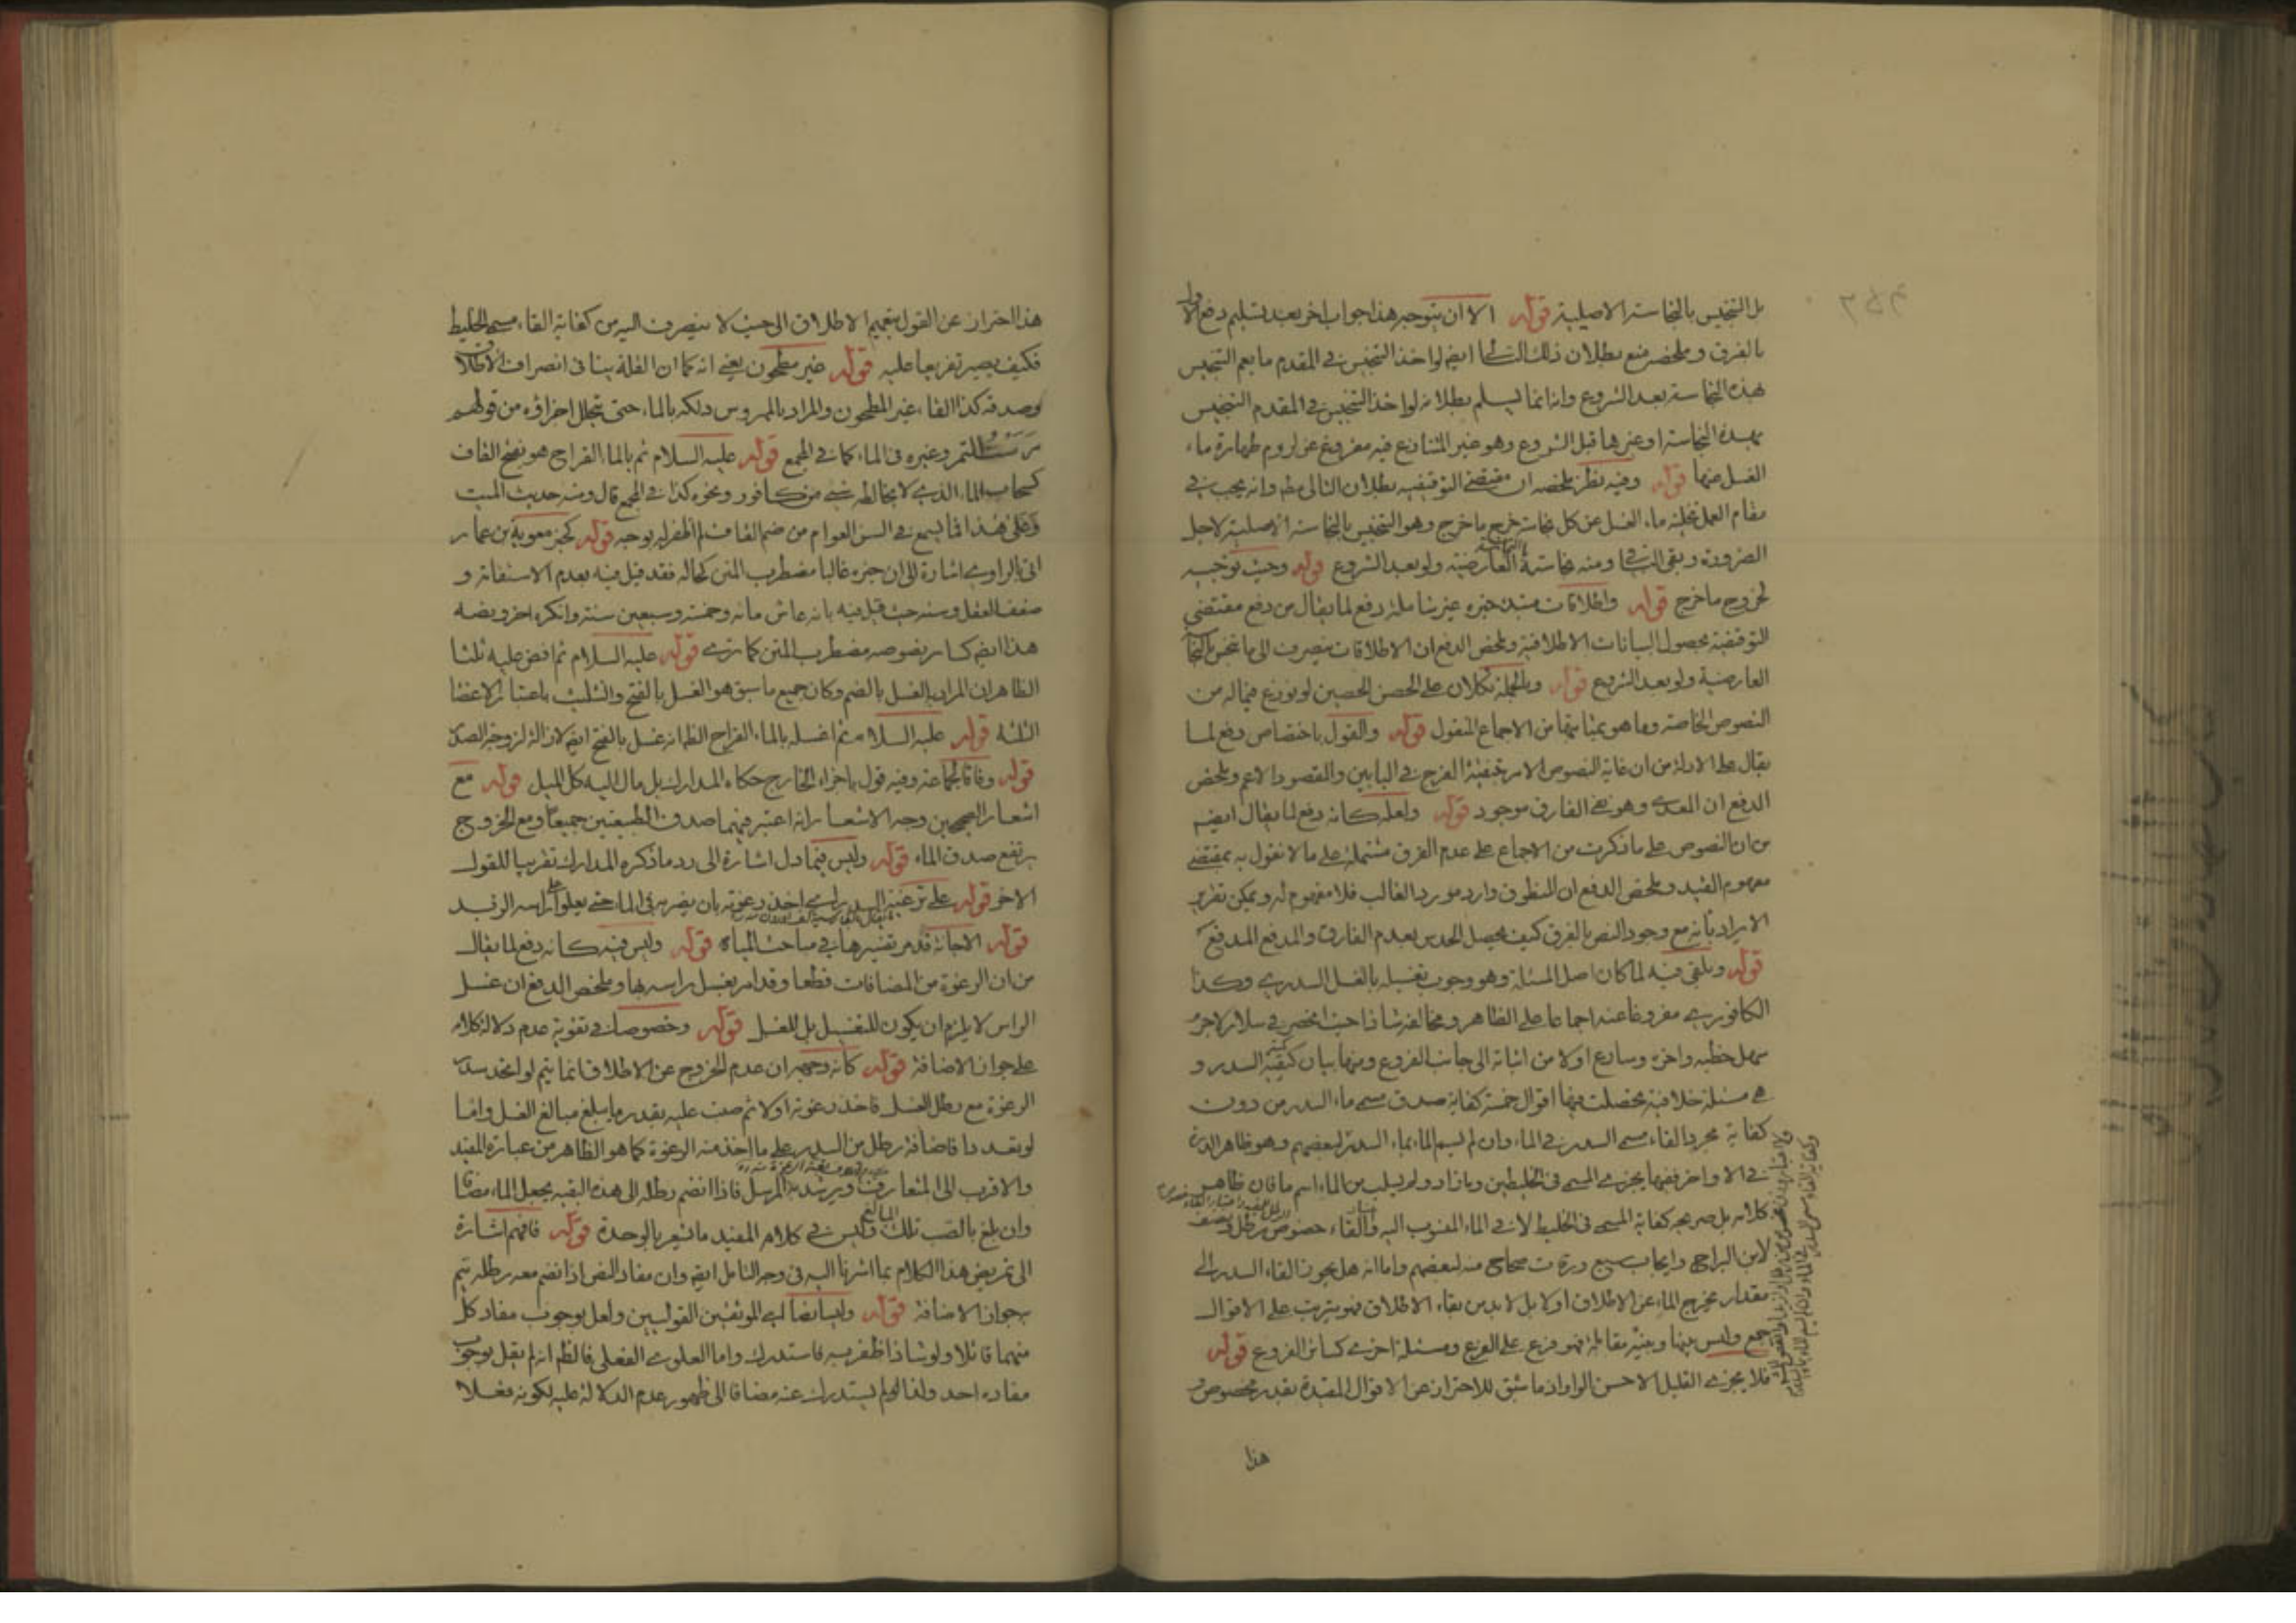 بل التنجيس بالنجاسة الاصلية قوله الا ان يتوجه هذا جواب اخر بعد تسليم دفع الاول
بالفرق وملخصه منع بطلان ذلك التالى ايضا لو اخذ التنجيس فى المقدم ما يعم التنجيس
بهذه النجاسة بعد الشروع وانه انما يسلم بطلانه لو اخذ التنجيس فى المقدم التنجيس
بهذه النجاسة او غيرها قبل الشروع وهو غير المتنازع فيه مفروغ عن لزوم طهارة ماء
الغسل عنها قوله وفيه نظر ملخصه ان مقتضى التوقيفيه بطلان التالى وانه يجب فى
مقام العمل نجاسة ماء الغسل عن كل نجاسة خرج ما خرج وهو التنجيس بالنجاسة الاصلية لاجل
الضرورة وبقى الباقى ومنه نجاسة العارضية ولو بعد الشروع قوله وحيث توجبه
لخروج ما خرج قوله واطلاقات غيره غير شاملة دفع لما يقال من دفع مقتضى
التوقيفية بحصول البيانات الاطلاقية وملخص الدفع ان الاطلاقات منصرف الى ما تنجس بالنجاسة
العارضية ولو بعد الشروع قوله وبالجملة تكلان على الحصن الحصين لو نوزع فيما له من
النصوص الخاصة وما هو بمثابتها من الاجماع المنقول قوله والقول باختصاص دفع لما
يقال على الادلة من ان غاية النصوص الامر بتنقية الفرج فى البابين والمقصود الاعم وملخص
الدفع ان المعدى وهو نفى الفارق موجود قوله ولعله كانه دفع لما يقال ايضا
من ان النصوص على ما ذكرت من الاجماع على عدم الفرق مشتملة على ما لا نقول به بمقتضى
مفهوم القيد وملخص الدفع ان المنطوق وارد مورد الغالب فلا مفهوم له ويمكن تقرير
الايراد بانه مع وجود النص بالفرق كيف يحصل الحدس بعدم الفارق والمدفع المدفع
قوله ويلقى فيه لما كان اصل المسئلة وهو وجوب تغسيله بالغسل السدرى وكذا
الكافورى مفروغا عنه اجماعا على الظاهر ومخالفه شاذا حيث انحصر فى سلار لاجرم
سهل خطبه واخره وسارع اولا من اثباته الى جانب الفروع ومنها بيان كيفية السدر و
هى مسئلة خلافية تحصلت فيها اقوال خمسة كفاية صدق مسمى ماء السدر من دون
كفاية مجرد القاء مسمى السدر فى الماء وان لم يسم الماء بماء السدر لبعضهم وهو ظاهر المتن
فى الاواخر ففيها يجزى المسمى فى الخليطين وما زاد ولم يسلب من الماء اسم ما فان ظاهر
كلامه بل صريحه كفاية المسمى فى الخليط لا فى الماء المنسوب اليه والقاء خصوص رطل ونصف
لابن البراج وايجاب سبع ورقات صحاح منه لبعضهم واما انه هل يجوز القاء السدر الى
مقدار يخرج الماء عن الاطلاق اولا بل لا بد من بقاء الاطلاق فهو يترتب على الاقوال
جمع وليس بينها وبينه مقابلة فهو فرع على الفرع ومسئلة اخرى كسائر الفروع قوله
فلا يجزى القليل الاحسن الواو اذ ما سبق للاحتراز عن الاقوال المقيدة بقدر مخصوص
هذا
هذا احتراز عن القول بتعميم الاطلاق الى حيث لا ينصرف اليه من كفاية القاء مسمى الخليط
فكيف يصير تفريعا عليه قوله غير مطحون يعنى انه كما ان القلة ينافى انصراف الاطلاق
وصدقه كذا القاء غير المطحون والمراد بالممروس دلكه بالماء حتى تتحلل اجزاؤه من قولهم
مرست التمر وغيره فى الماء كما فى المجمع قوله عليه السلام ثم بالماء القراح هو بفتح القاف
كسحاب الماء الذى لا يخالطه شئ من كافور ونحوه كذا فى المجمع قال ومنه حديث الميت
وعلى هذا فما يسمع فى السن العوام من ضم القاف لم اظفر له بوجه قوله كخبر معوية بن عمار
اتى بالراوى اشارة الى ان خبره غالبا مضطرب المتن كحاله فقد قيل فيه بعدم الاستقامة و
ضعف العقل وسنه حيث قيل فيه بانه عاش مائة وخمسة وسبعين سنة وانكره اخر ويضه
هذا ايضا كسائر نصوصه مضطرب المتن كما ترى قوله عليه السلام ثم افض عليه ثلثا
الظاهر ان المراد الغسل بالضم وكان جميع ما سبق هو الغسل بالفتح والتثليث باعتبار الاعضا
الثلثة قوله عليه السلام ثم اغسله بالماء القراح الظاهر انه غسل بالفتح ايضا لازالة لزوجة الصدر
قوله وفاقا لجماعة وفيه قول باجزاء الخارج حكاه المدارك بل مال اليه كل الميل قوله مع
اشعار الصحيحين وجه الاشعار انه اعتبر فيهما صدق الطبيعتين جميعا ومع الخروج
يرتفع صدق الماء قوله وليس فيما دل اشارة الى رد ما ذكره المدارك تقريبا للقول
الاخر قوله على ترغية السدر اى اخذ رغوته بان يضربه فى الماء حتى يعلو على راسه الزبد
قوله الاجانة قد مر تفسيرها فى مباحث المياه قوله وليس فيه كانه دفع لما يقال
من ان الرغوة من المضافات قطعا وقد امر بغسل راسه بها وملخص الدفع ان غسل
الراس لا يلزم ان يكون للتغسيل بل للغسل قوله وخصوصا فى تقوية عدم دلالة كلامه
على جواز الاضافة قوله كانه وجهه ان عدم الخروج عن الاطلاق انما يتم لو اتحد سدر
الرغوة مع رطل الغسل فاخذ رغوته اولا ثم صب عليه بقدر ما يبلغ مبالغ الغسل واما
لو تعددا فاضافة رطل من السدر على ما اخذ منه الرغوة كما هو الظاهر من عبارة المفيد
والاقرب الى المتعارف ويرشد به المرسل فاذا انضم رطله الى هذه البقية يجعل الماء مضافا
وان بلغ بالصب تلك المبالغ وليس فى كلام المفيد ما يشعر بالوحدة قوله فافهم اشارة
الى تمريض هذا الكلام بما اشرنا اليه فى وجه التامل ايضا وان مفاد النص اذا انضم معه رطله يتم
جواز الاضافة قوله وليسا نصا اى الموثقين القولين ولعل بوجوب مفاد كل
منهما قائلا ولو شاذا ظفر به فاستدرك واما العلوى الفعلى فالظاهر انه لم يقل بوجوب
مفاده احد ولذا لم يستدرك عنه مضافا الى ظهور عدم الدلالة عليه لكونه فعلا